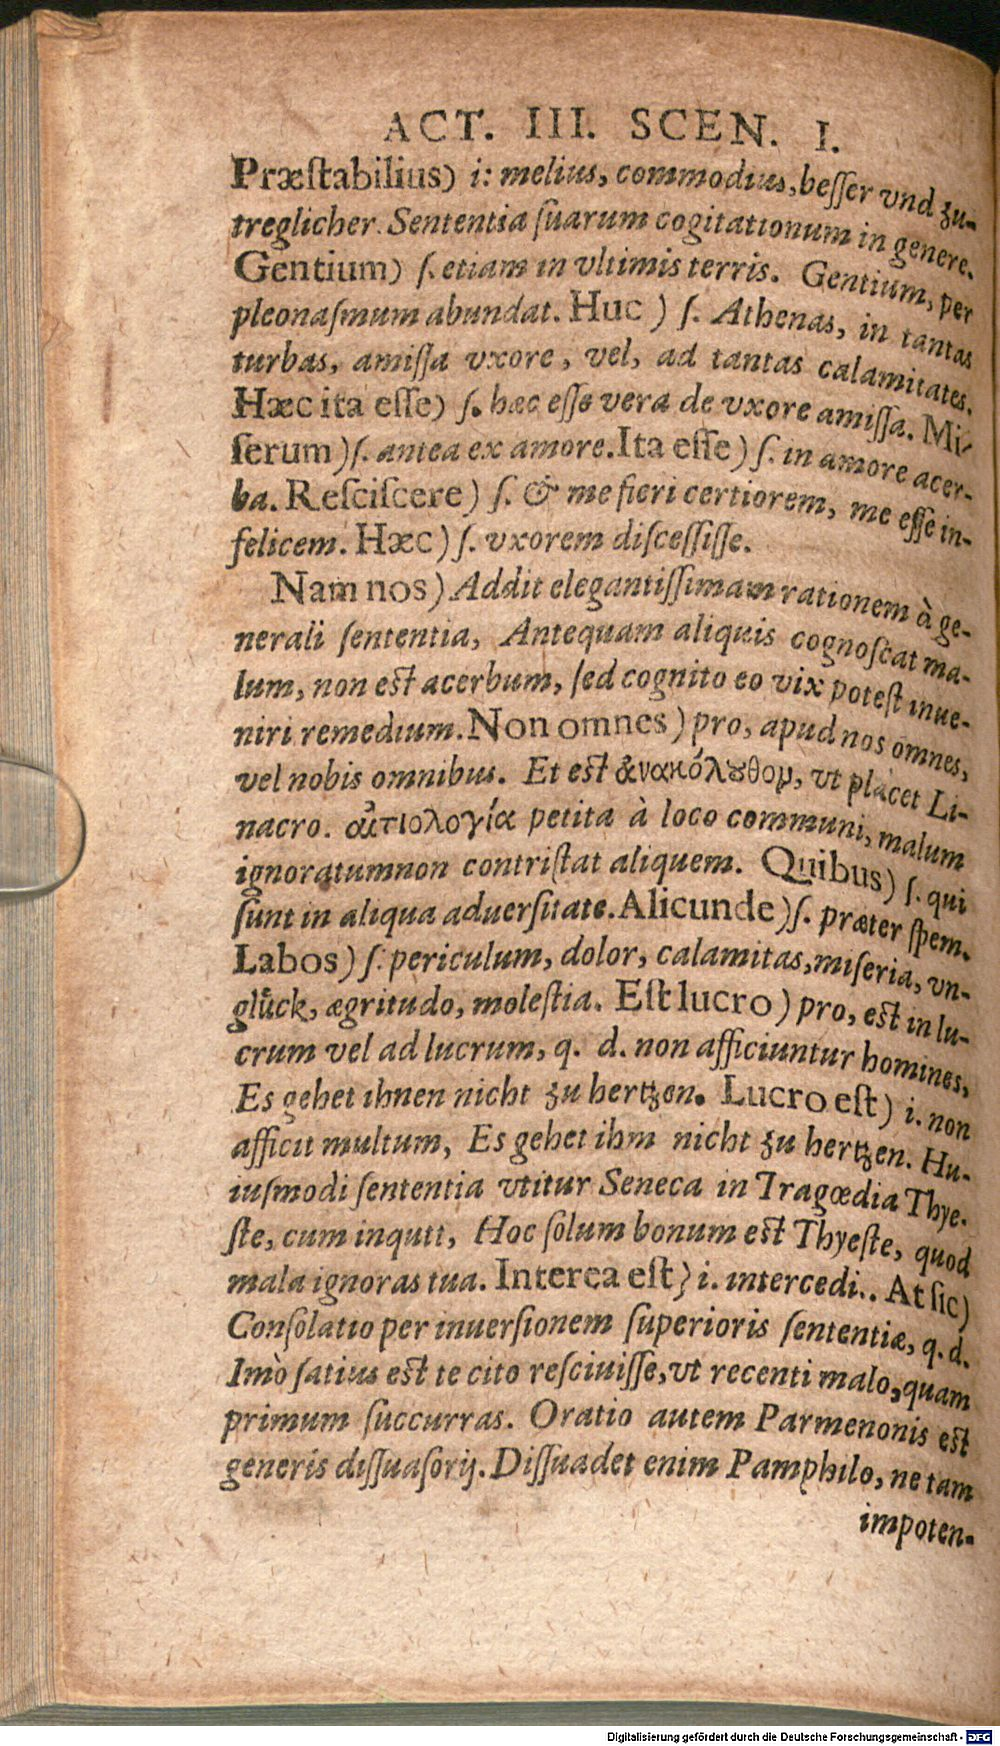 ACT. III. SCEN. I.
Præſtabilius) i: melius, commodius, beſſer vnd zu-
treglicher. Sententia ſuarum cogitationum in genere.
Gentium) ſ. etiam in vltimis terris. Gentium, per
pleonaſmum abundat. Huc) ſ. Athenas, in tantas
turbas, amiſſa vxore, vel, ad tantas calamitates.
Hæc ita eſſe) ſ. hæc eſſe vera de vxore amiſſa. Mi-
ſerum) ſ. antea ex amore. Ita eſſe) ſ. in amore acer-
ba. Reſciſcere) ſ. & me fieri certiorem, me eſſe in-
felicem. Hæc) ſ. vxorem diſceſſiſſe.
Nam nos) Addit elegantiſſimam rationem à ge-
nerali ſententia, Antequam aliquis cognoſcat ma-
lum, non eſt acerbum, ſed cognito eo vix poteſt inue-
niri remedium. Non omnes) pro, apud nos omnes,
vel nobis omnibus. Et eſt ἀνακόλȣθομ, vt placet Li-
nacro. αἰτιολογία petita à loco communi, malum
ignoratumnon contriſtat aliquem. Quibus) ſ. qui
ſunt in aliqua aduerſitate. Alicunde) ſ. præter ſpem.
Labos) ſ: periculum, dolor, calamitas, miſeria, vn-
glůck, ægritudo, moleſtia. Eſt lucro) pro, eſt in lu-
crum vel ad lucrum, q. d. non afficiuntur homines,
Es gehet ihnen nicht zu hertzen. Lucro eſt) i. non
afficit multum, Es gehet ihm nicht zu hertzen. Hu-
iuſmodi ſententia vtitur Seneca in Tragœdia Thye-
ſte, cum inqutt, Hoc ſolum bonum eſt Thyeſte, quod
mala ignoras tua. Interea eſt) i. intercedi.. At ſic)
Conſolatio per inuerſionem ſuperioris ſententiæ, q. d.
Imò ſatius eſt te cito reſciuiſſe, vt recenti malo, quam
primum ſuccurras. Oratio autem Parmenonis eſt
generis diſſuaſorij. Diſſuadet enim Pamphilo, ne tam
impoten-
Digitalisierung gefördert durch die Deutsche Forschungsgemeinschaft - DFG